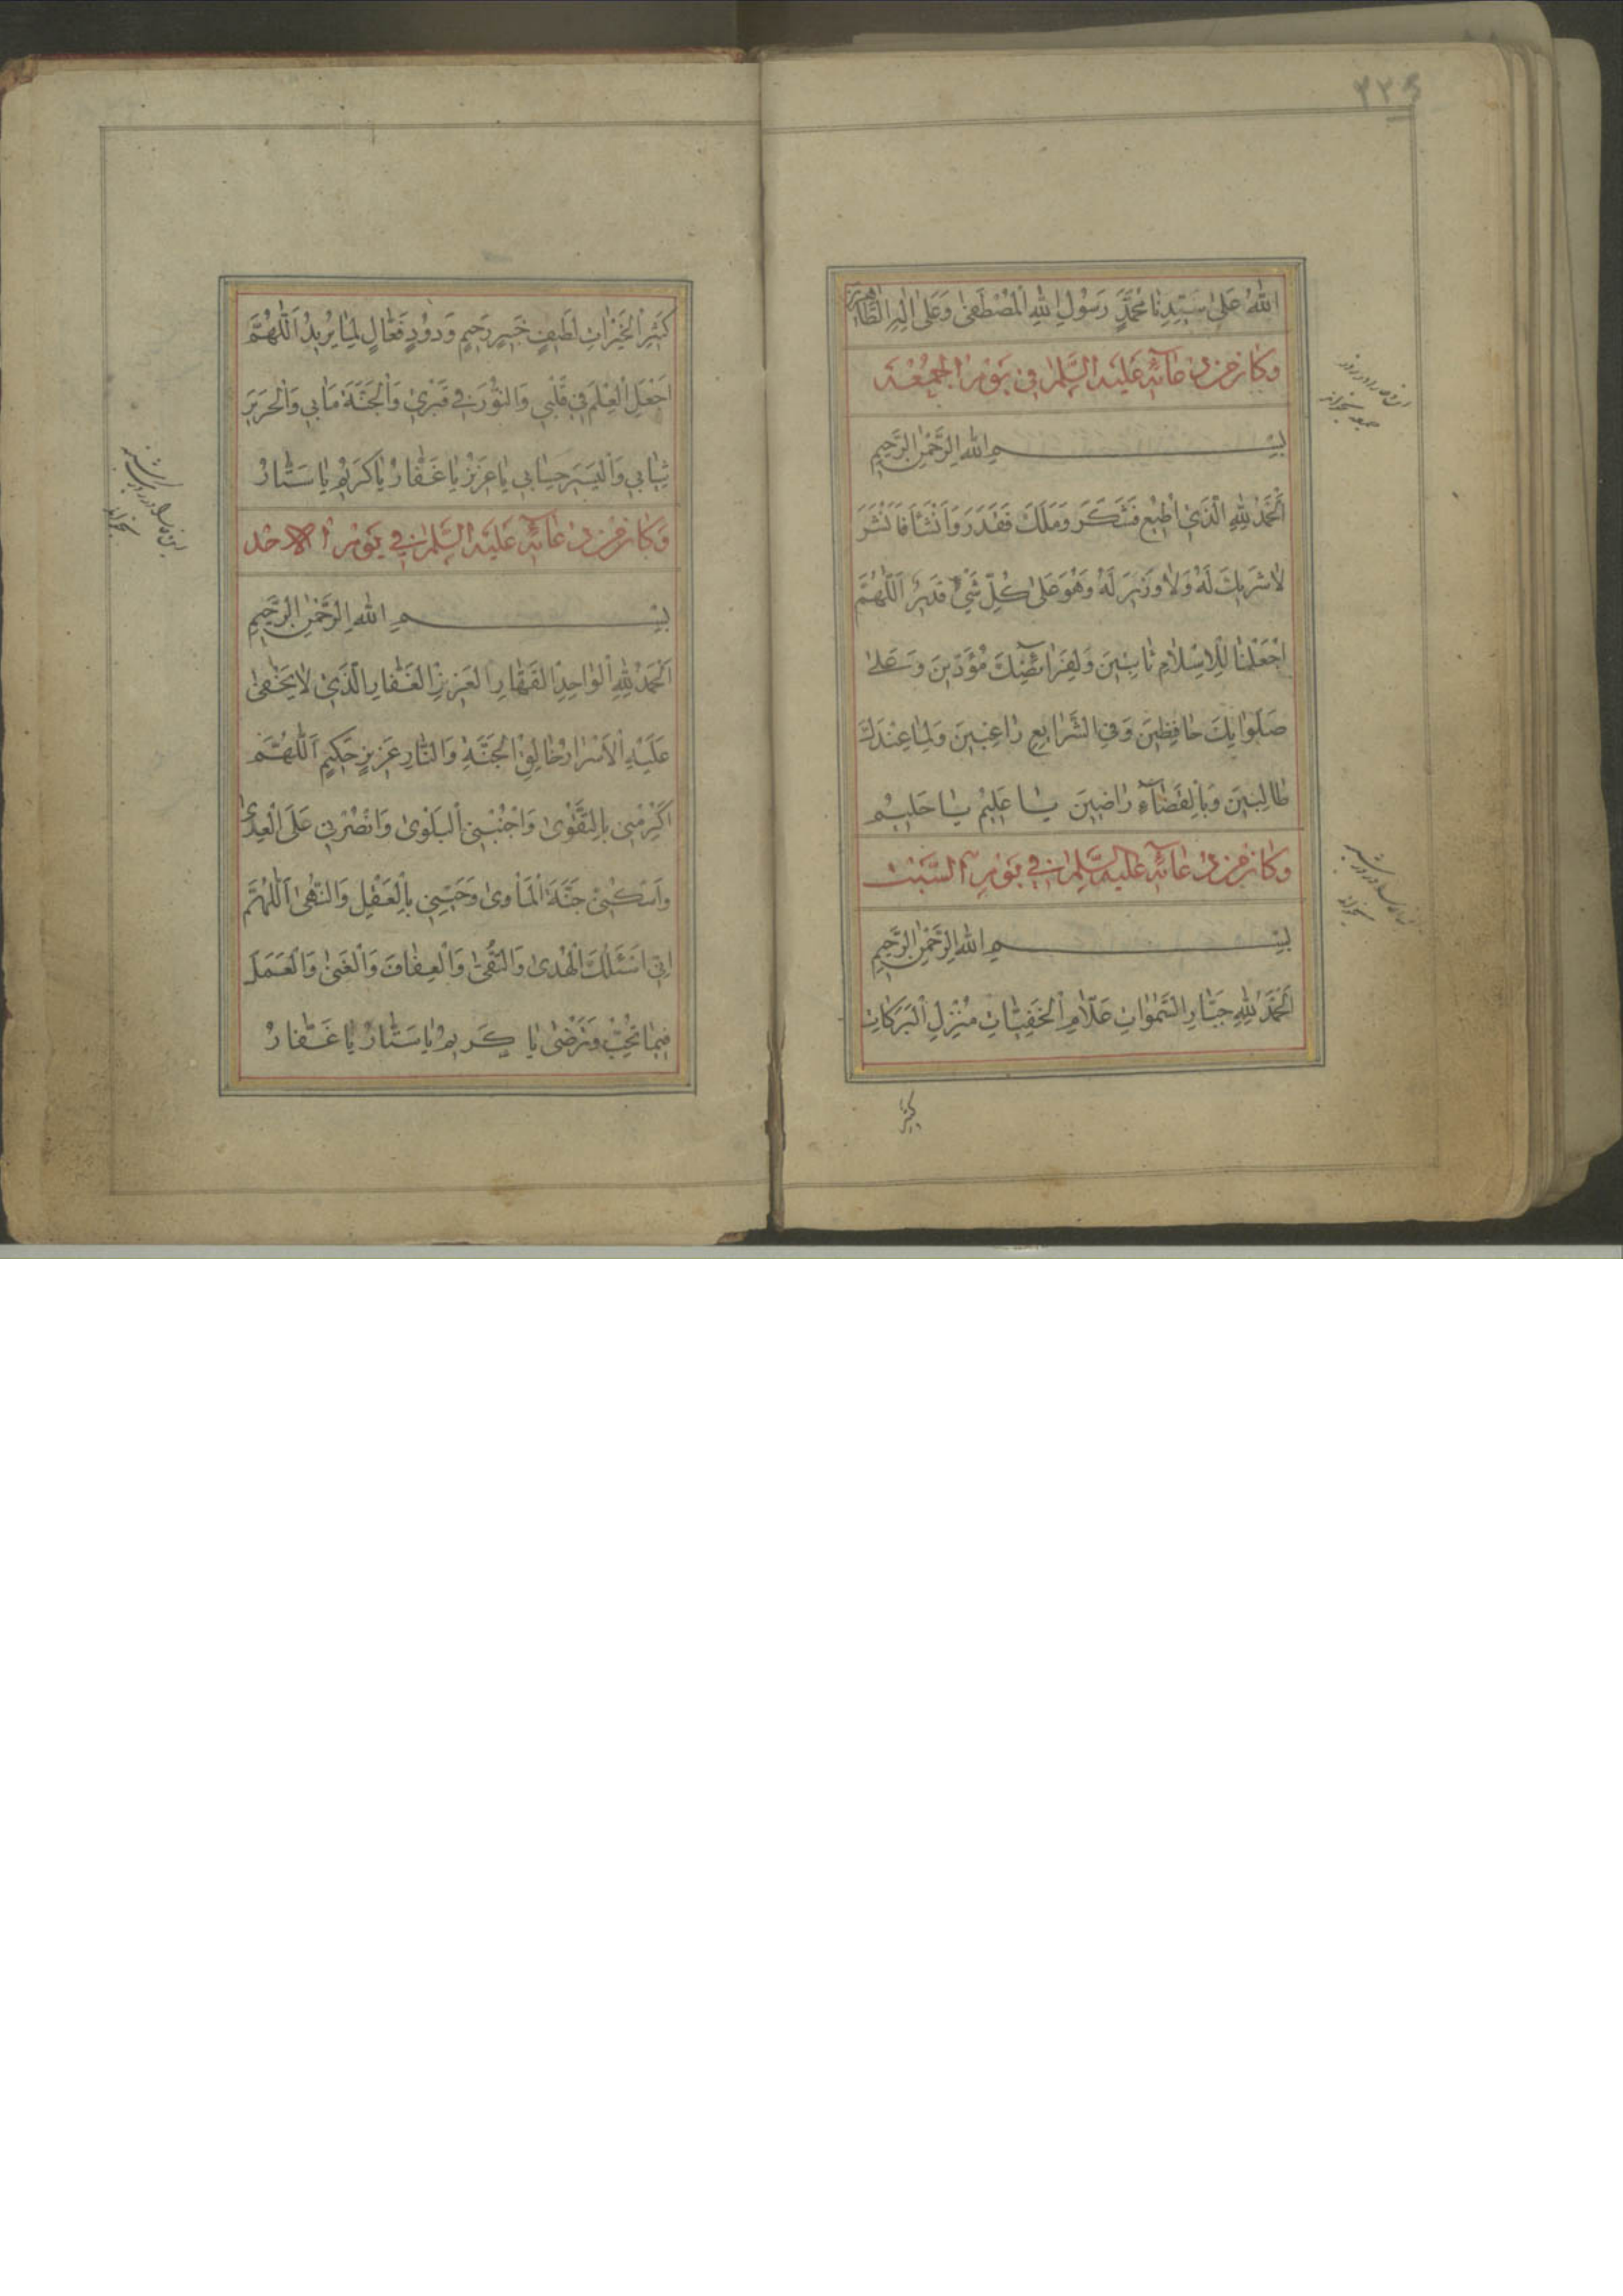 ٢٣٤
اللّٰهُ عَلىٰ سَيِّدِنَا مُحَمَّدٍ رَسُولِ اللّٰهِ الْمُصْطَفىٰ وَعَلىٰ اٰلِهِ الطَّاهِرينَ
وَكانَ مِنْ دُعائِهِ عَلَيْهِ السَّلٰمُ في يَوْمِ الْجُمُعَة
بِسْمِ اللّٰهِ الرَّحْمٰنِ الرَّحيمِ
اَلْحَمْدُ لِلّٰهِ الَّذي اُطيعَ فَشَكَرَ وَمَلَكَ فَقَدَرَ وَاَنْشَأَ فَاَنْشَرَ
لا شَريكَ لَهُ وَلا وَزيرَ لَهُ وَهُوَ عَلىٰ كُلِّ شَيْءٍ قَديرٌ اَللّٰهُمَّ
اجْعَلْنا لِلْاِسْلامِ ثابِتينَ وَلِفَرائِضِكَ مُؤَدّينَ وَعَلىٰ
صَلَواتِكَ حافِظينَ وَفِي الشَّرايِعِ راغِبينَ وَلِما عِنْدَكَ
طالِبينَ وَبِالْقَضآءِ راضينَ يا عَليمُ يا حَليمُ
وَكانَ مِنْ دُعائِهِ عَلَيْهِ السَّلٰمُ في يَوْمِ السَّبْت
بِسْمِ اللّٰهِ الرَّحْمٰنِ الرَّحيمِ
اَلْحَمْدُ لِلّٰهِ جَبّارِ السَّمٰواتِ عَلّامِ الْخَفِيّاتِ مُنْزِلِ الْبَرَكاتِ
كثير
كَثيرِ الْخَيْراتِ لَطيفٍ خَبيرٍ رَحيمٍ وَدُودٍ فَعّالٍ لِما يُريدُ اَللّٰهُمَّ
اجْعَلِ الْعِلْمَ في قَلْبي وَالنُّورَ في قَبْري وَالْجَنَّةَ مَابي وَالْحَريرَ
ثِيابي وَالْيَسيرَ حِسابي يا عَزيزُ يا غَفّارُ يا كَريمُ يا سَتّارُ
وَكانَ مِنْ دُعائِهِ عَلَيْهِ السَّلٰمُ في يَوْمِ الْاَحَد
بِسْمِ اللّٰهِ الرَّحْمٰنِ الرَّحيمِ
اَلْحَمْدُ لِلّٰهِ الْواحِدِ الْقَهّارِ الْعَزيزِ الْغَفّارِ الَّذي لا يَخْفىٰ
عَلَيْهِ الْاَسْرارُ خالِقِ الْجَنَّةِ وَالنّارِ عَزيزٍ حَكيمٍ اَللّٰهُمَّ
اَكْرِمْني بِالتَّقْوىٰ وَاجْنُبْني الْبَلْوىٰ وَانْصُرْني عَلَى الْعِدىٰ
وَاَسْكِنّي جَنَّةَ الْمَأْوىٰ وَحَبِّبْني بِالْعَقْلِ وَالنُّهىٰ اَللّٰهُمَّ
اِنّي اَسْئَلُكَ الْهُدىٰ وَالتُّقىٰ وَالْعِفافَ وَالْغِنىٰ وَالْعَمَلَ
فيما تُحِبُّ وَتَرْضىٰ يا كَريمُ يا سَتّارُ يا غَفّارُ